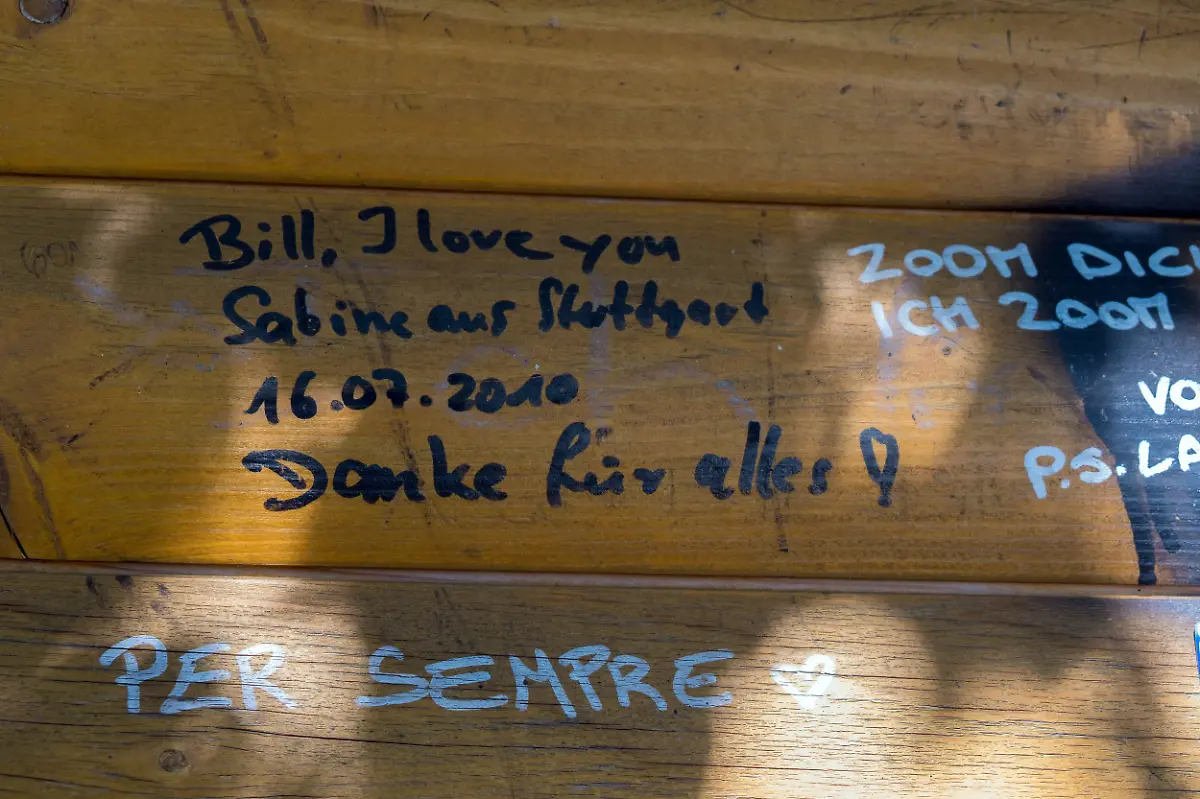 Bill, I love you
Sabine aus Stuttgart
16.07.2010
Danke für alles!
ZOOM DICH
ICH ZOOM
VO
P.S. LA
PER SEMPRE ♡